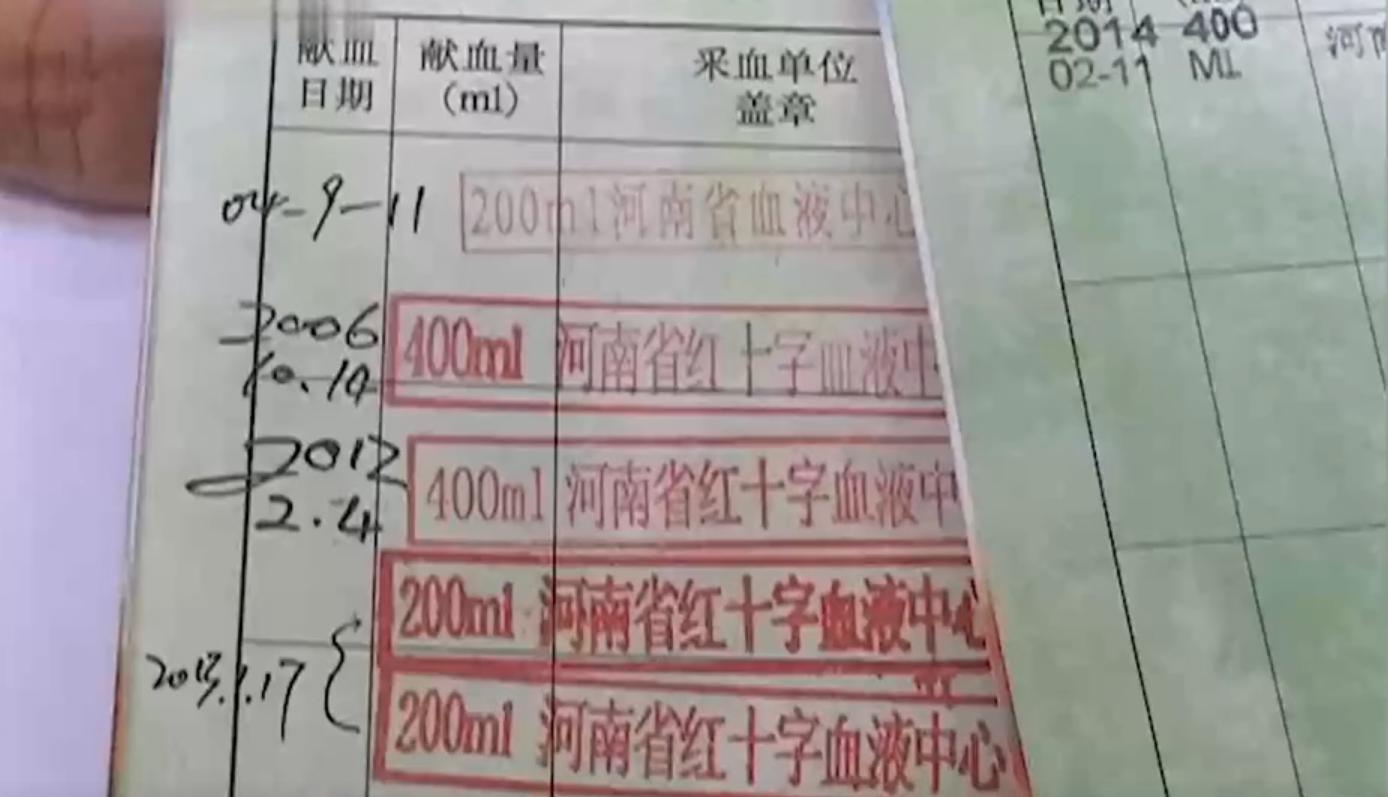 献血 献血量 采血单位
日期 (ml) 盖章
04-9-11 200ml河南省血液中心
2006 400ml 河南省红十字血液中
10.14
2012 400ml 河南省红十字血液中
2.4
200ml 河南省红十字血液中心
2013.1.17 200ml 河南省红十字血液中心
日期
2014 400 河南
02-11 ML